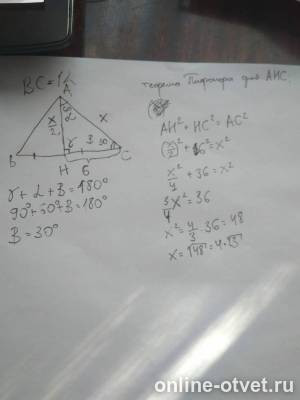 BC=12
A
x/2
α
x
γ
β 30°
B
H
C
6
γ+α+β=180°
90°+60°+β=180°
β=30°
теорема Пифагора для AHC
AH²+HC²=AC²
(x/2)²+6²=x²
x²/4+36=x²
3/4x²=36
x²=4/3·36=48
x=√48=4·√3
online-otvet.ru